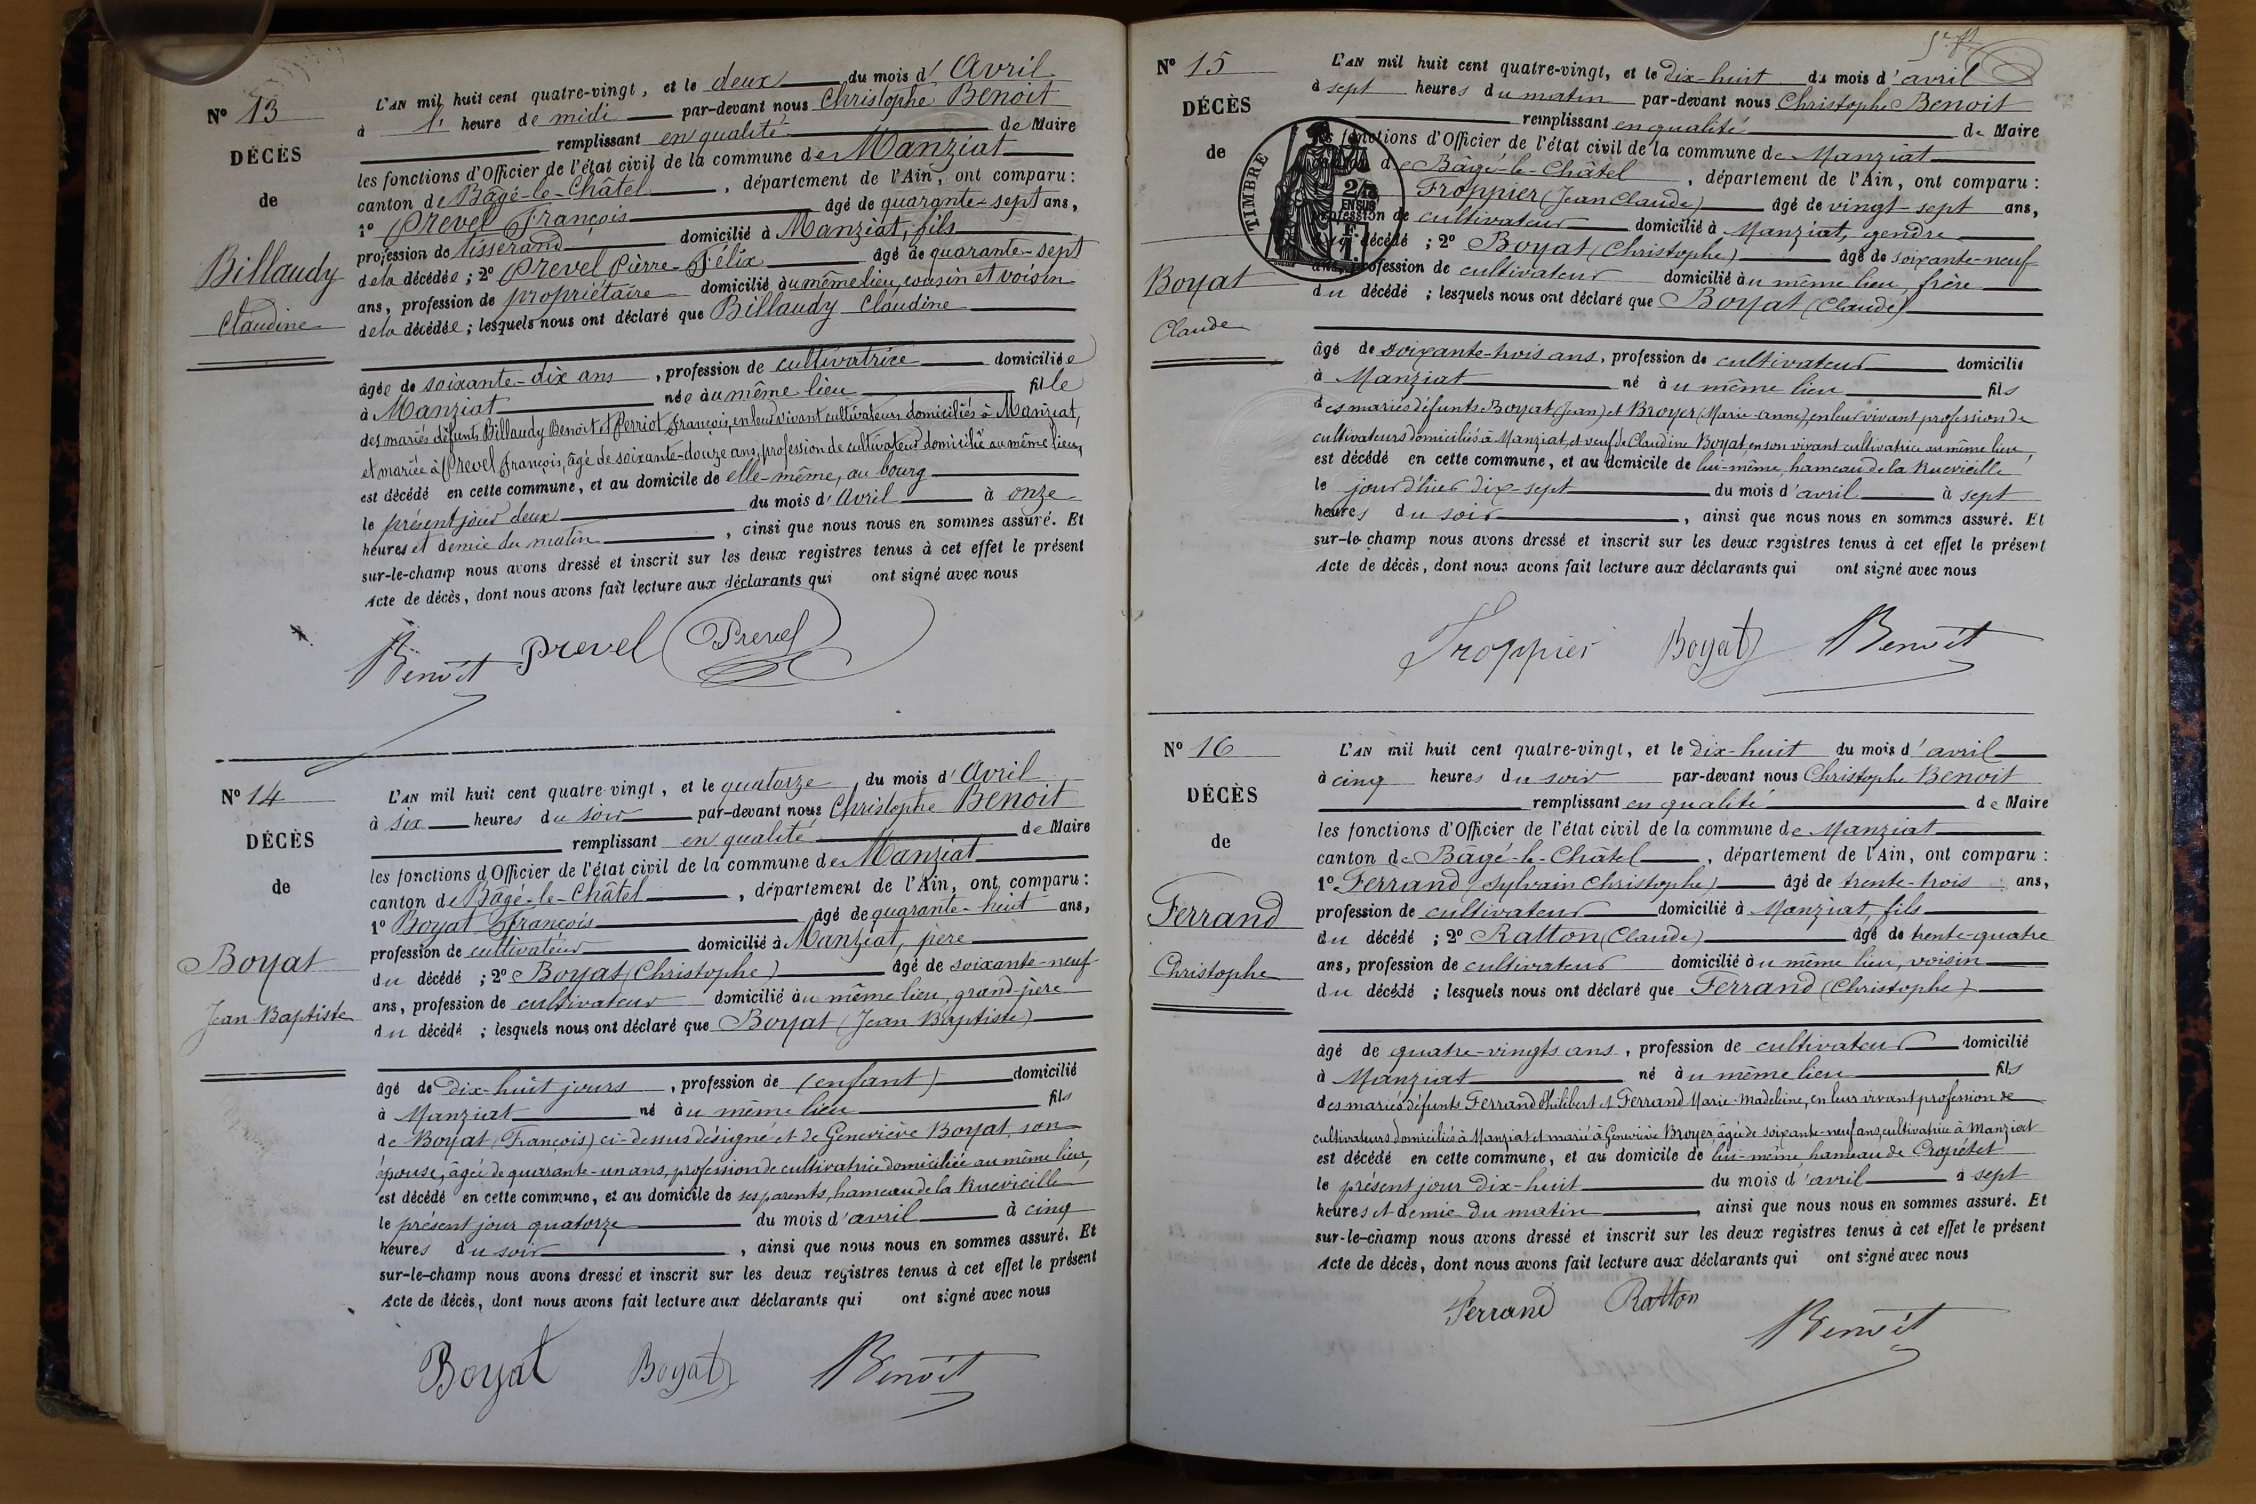 N° 13
DÉCÈS
de
Billaudy
Claudine
L'AN mil huit cent quatre-vingt, et le deux du mois d'Avril
à 1 heure de midi par-devant nous Christophe Benoit
remplissant en qualité de Maire
les fonctions d'Officier de l'état civil de la commune de Manziat
canton de Bâgé-le-Châtel, département de l'Ain, ont comparu :
1° Prevel François âgé de quarante-sept ans,
profession de tisserand domicilié à Manziat, fils
de la décédée ; 2° Prevel Pierre-Félix âgé de quarante-sept
ans, profession de propriétaire domicilié au même lieu, cousin et voisin
de la décédée ; lesquels nous ont déclaré que Billaudy Claudine
âgée de soixante-dix ans, profession de cultivatrice domiciliée
à Manziat née au même lieu fille
des mariés défunts Billaudy Benoît et Perriot François, en leur vivant cultivateurs domiciliés à Manziat,
et mariée à Prevel François, âgé de soixante-douze ans, profession de cultivateur domicilié au même lieu,
est décédé en cette commune, et au domicile de elle-même, au bourg
le présent jour deux du mois d'Avril à onze
heures et demie du matin, ainsi que nous nous en sommes assuré. Et
sur-le-champ nous avons dressé et inscrit sur les deux registres tenus à cet effet le présent
Acte de décès, dont nous avons fait lecture aux déclarants qui ont signé avec nous
Benoît Prevel Prevel
N° 14
DÉCÈS
de
Boyat
Jean-Baptiste
L'AN mil huit cent quatre-vingt, et le quatorze du mois d'Avril
à six heures du soir par-devant nous Christophe Benoit
remplissant en qualité de Maire
les fonctions d'Officier de l'état civil de la commune de Manziat
canton de Bâgé-le-Châtel, département de l'Ain, ont comparu :
1° Boyat François âgé de quarante-huit ans,
profession de cultivateur domicilié à Manziat, père
du décédé ; 2° Boyat (Christophe) âgé de soixante-neuf
ans, profession de cultivateur domicilié au même lieu, grand père
du décédé ; lesquels nous ont déclaré que Boyat (Jean Baptiste)
âgé de dix-huit jours, profession de (enfant) domicilié
à Manziat né au même lieu fils
de Boyat (François) ci-dessus désigné et de Geneviève Boyat, son
épouse, âgée de quarante-un ans, profession de cultivatrice domiciliée au même lieu,
est décédé en cette commune, et au domicile de ses parents, hameau de la Ruevieille
le présent jour quatorze du mois d'avril à cinq
heures du soir, ainsi que nous nous en sommes assuré. Et
sur-le-champ nous avons dressé et inscrit sur les deux registres tenus à cet effet le présent
Acte de décès, dont nous avons fait lecture aux déclarants qui ont signé avec nous
Boyat Boyat Benoît
N° 15
DÉCÈS
de
Boyat
Claude
TIMBRE
2/10
EN SUS
L'AN mil huit cent quatre-vingt, et le dix-huit du mois d'avril
à sept heures du matin par-devant nous Christophe Benoit
remplissant en qualité de Maire
les fonctions d'Officier de l'état civil de la commune de Manziat
de Bâgé-le-Châtel, département de l'Ain, ont comparu :
Froppier (Jean Claude) âgé de vingt-sept ans,
profession de cultivateur domicilié à Manziat, gendre
décédé ; 2° Boyat (Christophe) âgé de soixante-neuf
ans, profession de cultivateur domicilié au même lieu, frère
du décédé ; lesquels nous ont déclaré que Boyat (Claude)
âgé de soixante-trois ans, profession de cultivateur domicilié
à Manziat né au même lieu fils
des mariés défunts Boyat (Jean) et Broyer (Marie-Anne), en leur vivant profession de
cultivateurs domiciliés à Manziat, et veuf de Claudine Boyat, en son vivant cultivatrice au même lieu,
est décédé en cette commune, et au domicile de lui-même, hameau de la Ruevieille
le jour d'hier dix-sept du mois d'avril à sept
heures du soir, ainsi que nous nous en sommes assuré. Et
sur-le-champ nous avons dressé et inscrit sur les deux registres tenus à cet effet le présent
Acte de décès, dont nous avons fait lecture aux déclarants qui ont signé avec nous
Froppier Boyat Benoît
N° 16
DÉCÈS
de
Ferrand
Christophe
L'AN mil huit cent quatre-vingt, et le dix-huit du mois d'avril
à cinq heures du soir par-devant nous Christophe Benoit
remplissant en qualité de Maire
les fonctions d'Officier de l'état civil de la commune de Manziat
canton de Bâgé-le-Châtel, département de l'Ain, ont comparu :
1° Ferrand (Sylvain Christophe) âgé de trente-trois ans,
profession de cultivateur domicilié à Manziat, fils
du décédé ; 2° Ratton (Claude) âgé de trente-quatre
ans, profession de cultivateur domicilié au même lieu, voisin
du décédé ; lesquels nous ont déclaré que Ferrand (Christophe)
âgé de quatre-vingts ans, profession de cultivateur domicilié
à Manziat né au même lieu fils
des mariés défunts Ferrand Philibert et Ferrand Marie-Madeleine, en leur vivant profession de
cultivateurs domiciliés à Manziat et marié à Geneviève Broyer, âgée de soixante-neuf ans, cultivatrice à Manziat
est décédé en cette commune, et au domicile de lui-même, hameau de Cropétet
le présent jour dix-huit du mois d'avril à sept
heures et demie du matin, ainsi que nous nous en sommes assuré. Et
sur-le-champ nous avons dressé et inscrit sur les deux registres tenus à cet effet le présent
Acte de décès, dont nous avons fait lecture aux déclarants qui ont signé avec nous
Ferrand Ratton
Benoît